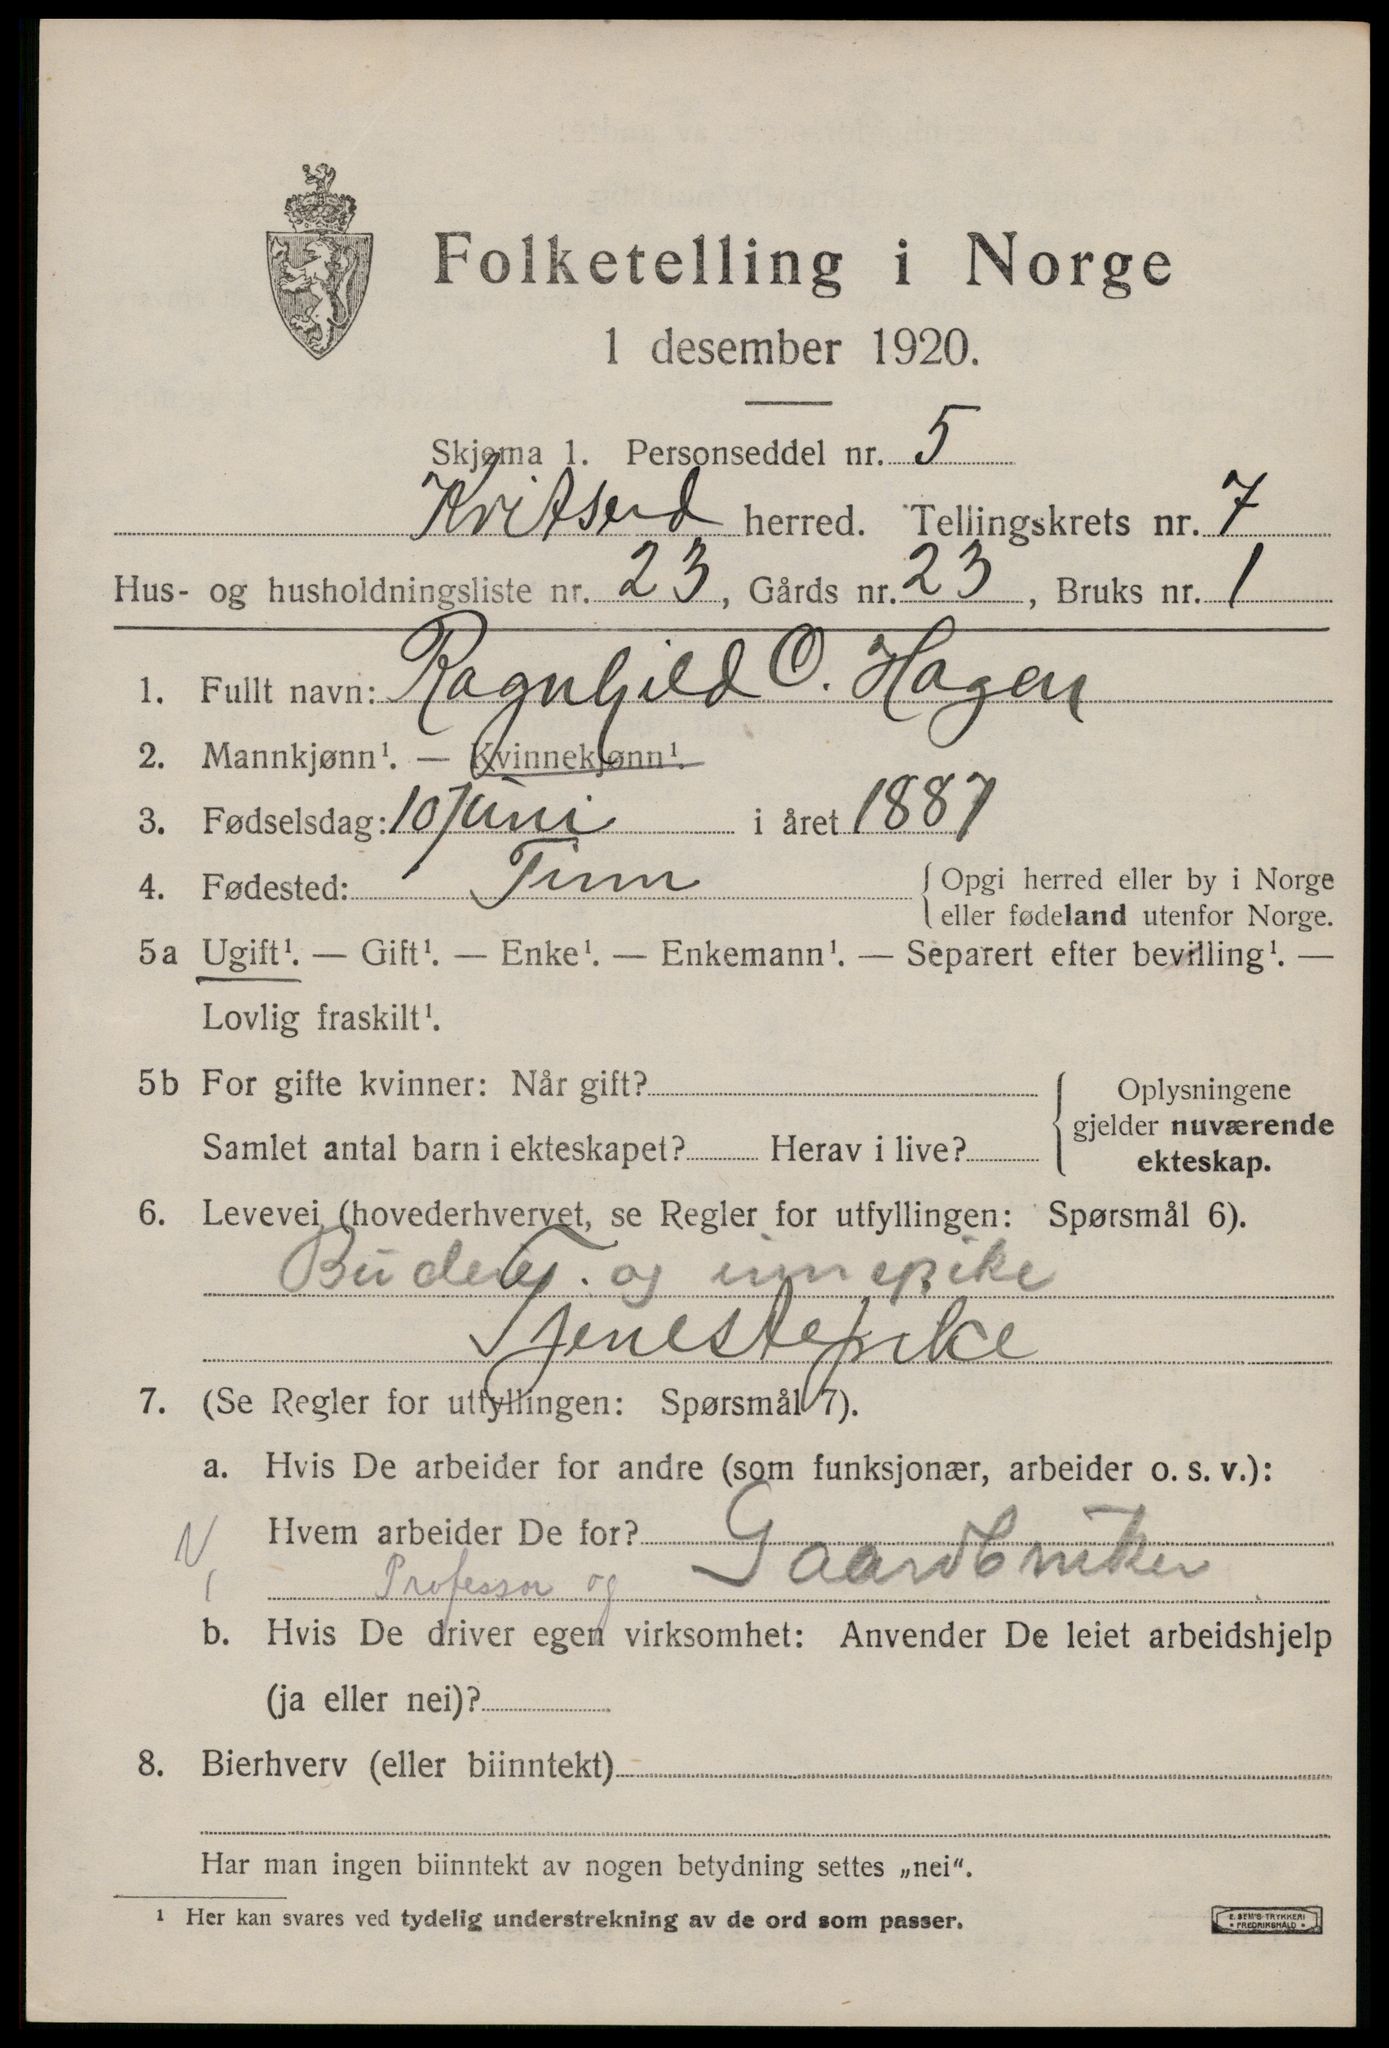 Folketelling i Norge
1 desember 1920.
Skjema 1. Personseddel nr. 5
Kvitseid herred. Tellingskrets nr. 7
Hus- og husholdningsliste nr. 23, Gårds nr. 23, Bruks nr. 1
1. Fullt navn: Ragnhild O. Hagen
2. Mannkjønn¹. — Kvinnekjønn¹.
3. Fødselsdag: 10 Juni i året 1887
4. Fødested: Tinn { Opgi herred eller by i Norge
eller fødeland utenfor Norge.
5a Ugift¹. — Gift¹. — Enke¹. — Enkemann¹. — Separert efter bevilling¹. —
Lovlig fraskilt¹.
5b For gifte kvinner: Når gift?
Samlet antal barn i ekteskapet? Herav i live?
{ Oplysningene
gjelder nuværende
ekteskap.
6. Levevei (hovederhvervet, se Regler for utfyllingen: Spørsmål 6).
og innepike
Tjenestepike
7. (Se Regler for utfyllingen: Spørsmål 7).
a. Hvis De arbeider for andre (som funksjonær, arbeider o. s. v.):
Hvem arbeider De for?
Professor og Gaardbruker
b. Hvis De driver egen virksomhet: Anvender De leiet arbeidshjelp
(ja eller nei)?
8. Bierhverv (eller biinntekt)
Har man ingen biinntekt av nogen betydning settes „nei“.
¹ Her kan svares ved tydelig understrekning av de ord som passer.
E. SEM'S TRYKKERI
• FREDRIKSHALD •